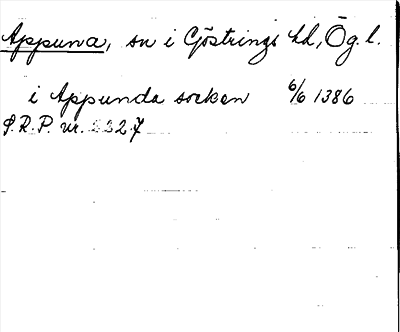 Appuna, sn i Göstrings hd, Ög. l.
i Appunda socken 6/6 1386
S.R.P. nr. 2327